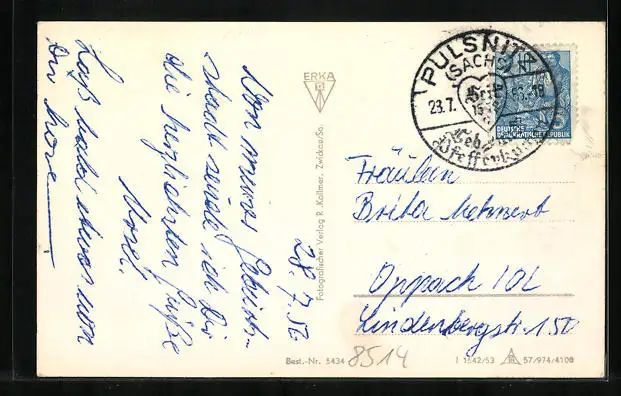 Von meiner Geburts-
stadt sende ich Dir
die herzlichsten Grüße
Laß bald etwas von
Dir hören
28.7.56
ERKA
Fotografischer Verlag R. Kallmer, Zwickau/Sa.
PULSNITZ
(SACHS)
23.7.
DEUTSCHE
DEMOKRATISCHE REPUBLIK
Fräulein
Oppach 10L
Lindenbergstr. 150
Best.-Nr. 5434
8514
I 1642/53
57/974/4100